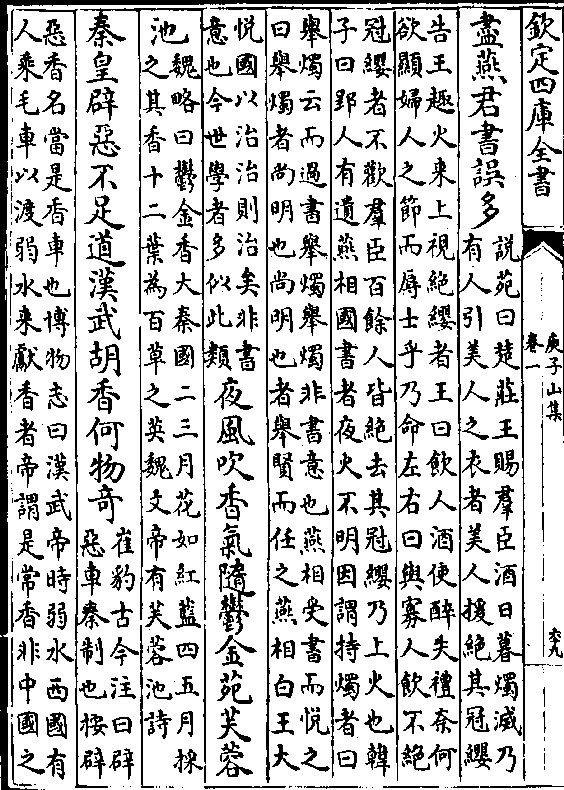 欽定四庫全書
庾子山集
卷一
盡燕君書誤多
説苑曰楚莊王賜羣臣酒日暮燭滅乃
有人引美人之衣者美人援絕其冠纓
告王趣火來上視絕纓者王曰飲人酒使醉失禮奈何
欲顯婦人之節而辱士乎乃命左右曰與寡人飲不絕
冠纓者不歡羣臣百餘人皆絕去其冠纓乃上火也韓
子曰郢人有遺燕相國書者夜火不明因謂持燭者曰
舉燭云而過書舉燭舉燭非書意也燕相受書而悦之
曰舉燭者尚明也尚明也者舉賢而任之燕相白王大
悦國以治治則治矣非書
意也今世學者多似此類
夜風吹香氣隨鬱金苑芙蓉
池
魏略曰鬱金香大秦國二三月花如紅藍四五月採
之其香十二葉為百草之英魏文帝有芙蓉池詩
秦皇辟惡不足道漢武胡香何物奇
崔豹古今注曰辟
惡車秦制也按辟
惡香名當是香車也博物志曰漢武帝時弱水西國有
人乘毛車以渡弱水來獻香者帝謂是常香非中國之